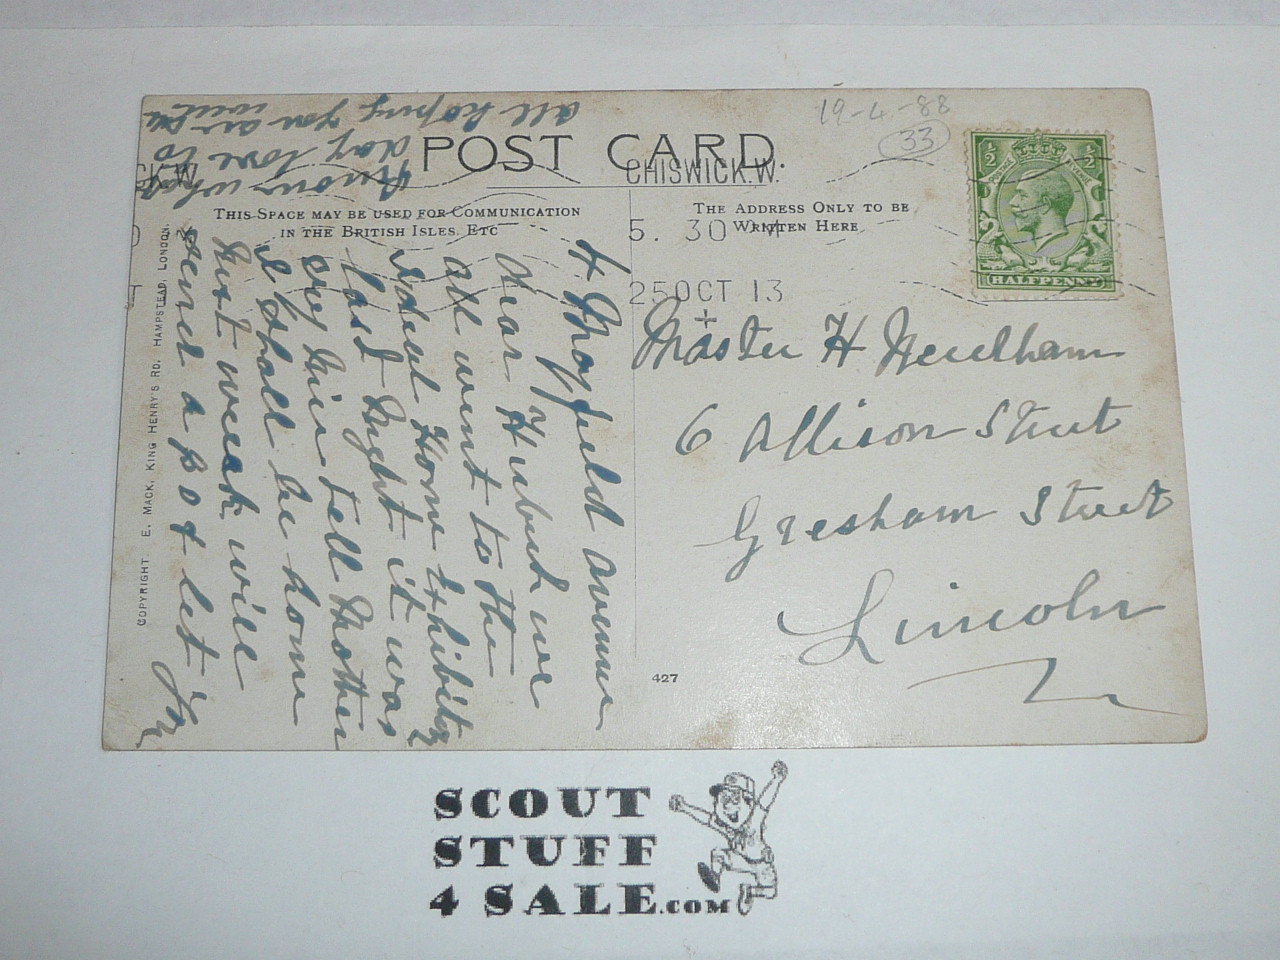 19-4-88
33
POST CARD.
THIS SPACE MAY BE USED FOR COMMUNICATION
IN THE BRITISH ISLES. ETC
THE ADDRESS ONLY TO BE
WRITTEN HERE
CHISWICK.W.
5. 30
25 OCT 13
+
CK.W.
½ ½
HALFPENNY
4 Mayfield Avenue
Dear Hubert we
all went to the
Ideal Home Exhibition
last Night it was
very nice tell Mother
I shall be home
next week will
send a P or let you
know what
day love to
all hoping you are
well
Master H Needham
6 Allison Street
Gresham Street
Lincoln
427
COPYRIGHT. E. MACK, KING HENRY'S RD. HAMPSTEAD, LONDON.
SCOUT
STUFF
4 SALE.COM